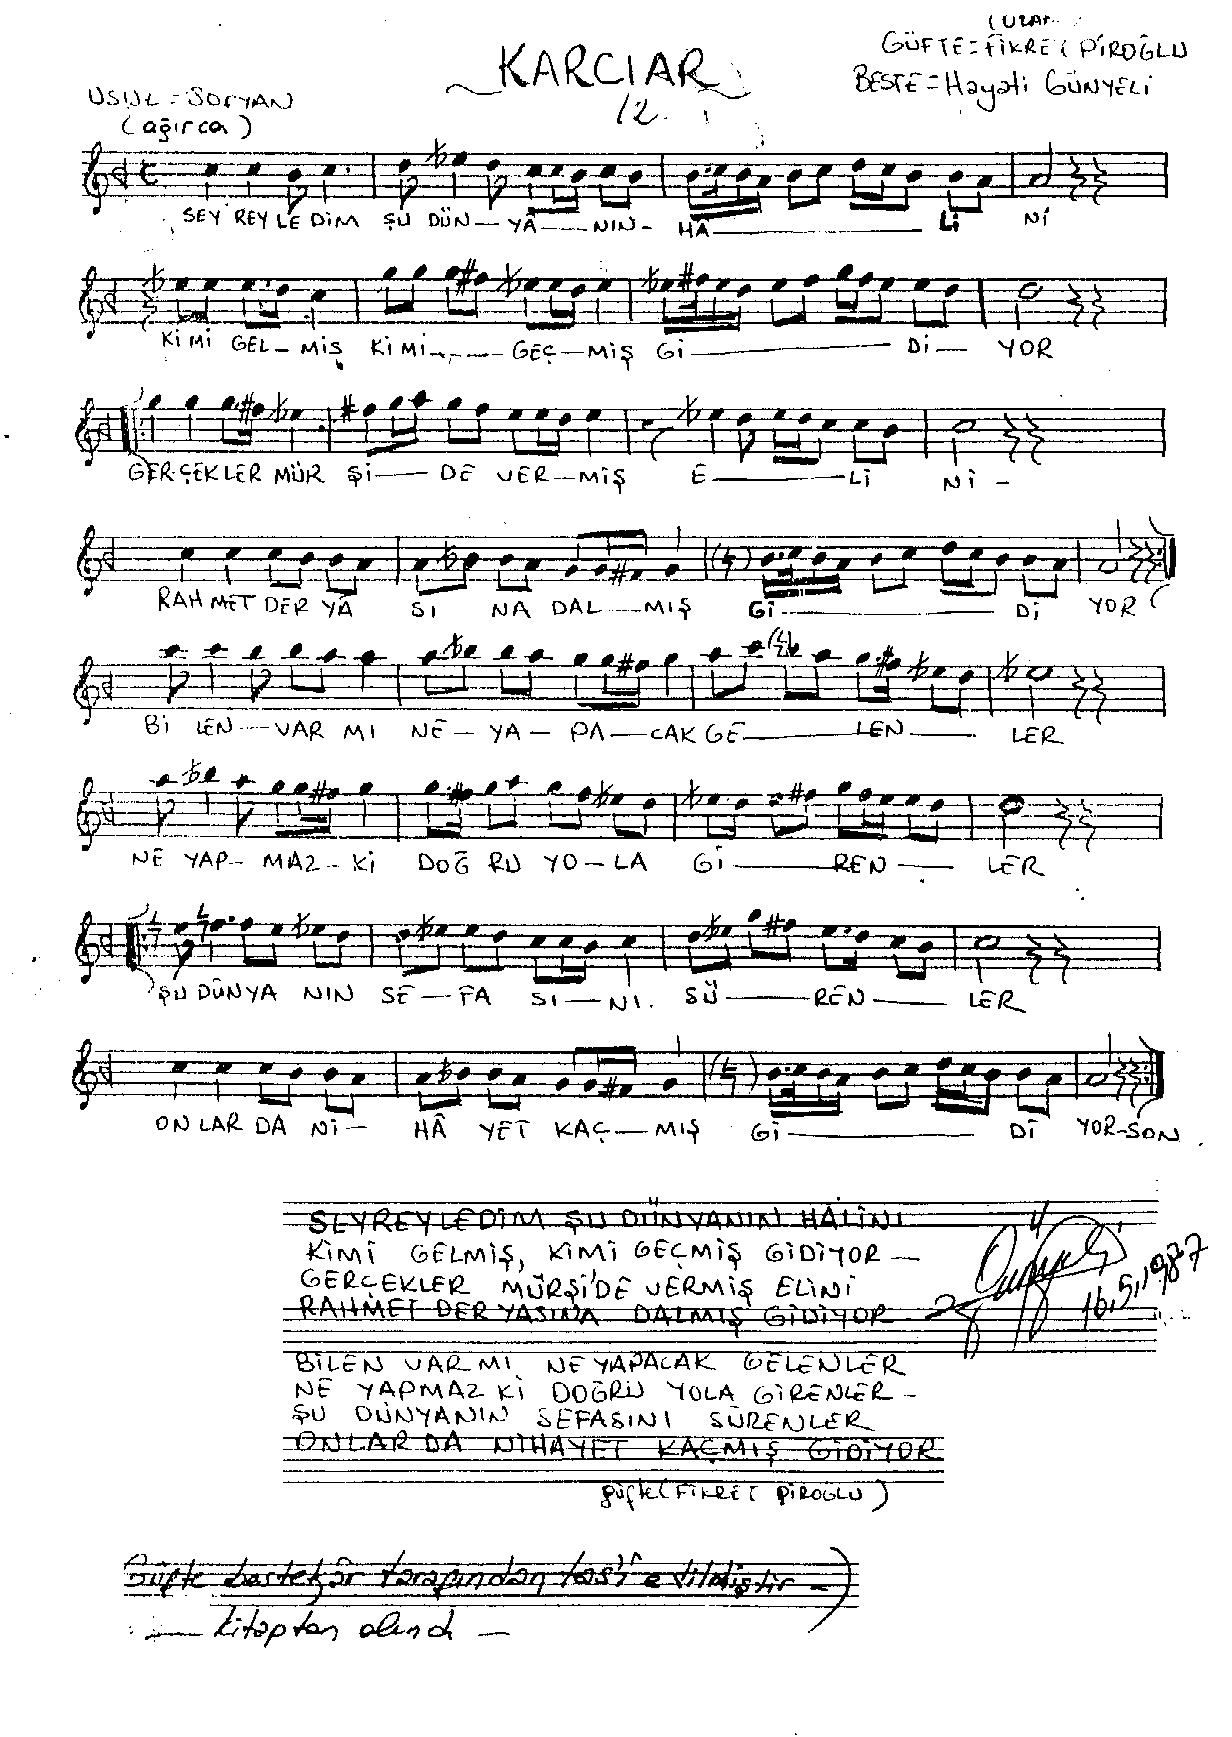 KARCIAR
12.
GÜFTE=FİKRET PİROĞLU
BESTE=Hayati GÜNYELİ
USUL=SOFYAN
(ağırca)
SEYREYLEDİM ŞU DÜN—YÂ—NIN- HÂ— Lİ Nİ
KİMİ GEL—MİŞ KİMİ—GEÇ—MİŞ Gİ— Dİ— YOR
GERÇEKLER MÜR Şİ—DE VER—MİŞ E—Lİ Nİ-
RAHMET DER YÂ SI NA DAL—MIŞ Gİ— Dİ YOR
Bİ LEN—VAR MI NE—YA—PA—CAK GE—LEN— LER
NE YAP—MAZ-Kİ DOĞ RU YO—LA Gİ—REN— LER
ŞU DÜNYA NIN SE—FA SI—NI. SÜ—REN— LER
ONLAR DA Nİ— HÂ YET KAÇ—MIŞ Gİ— Dİ YOR-SON
SEYREYLEDİM ŞU DÜNYANIN HÂLİNİ
KİMİ GELMİŞ, KİMİ GEÇMİŞ GİDİYOR—
GERÇEKLER MÜRŞİ'DE VERMİŞ ELİNİ
RAHMET DERYASINA DALMIŞ GİDİYOR
16.5.1987
BİLEN VAR MI NE YAPACAK GELENLER
NE YAPMAZ Kİ DOĞRU YOLA GİRENLER—
ŞU DÜNYANIN SEFASINI SÜRENLER
ONLAR DA NİHAYET KAÇMIŞ GİDİYOR
güfte (FİKRET PİROĞLU)
Güfte bestekâr tarafından edilmiştir—)
— kitaptan alındı —